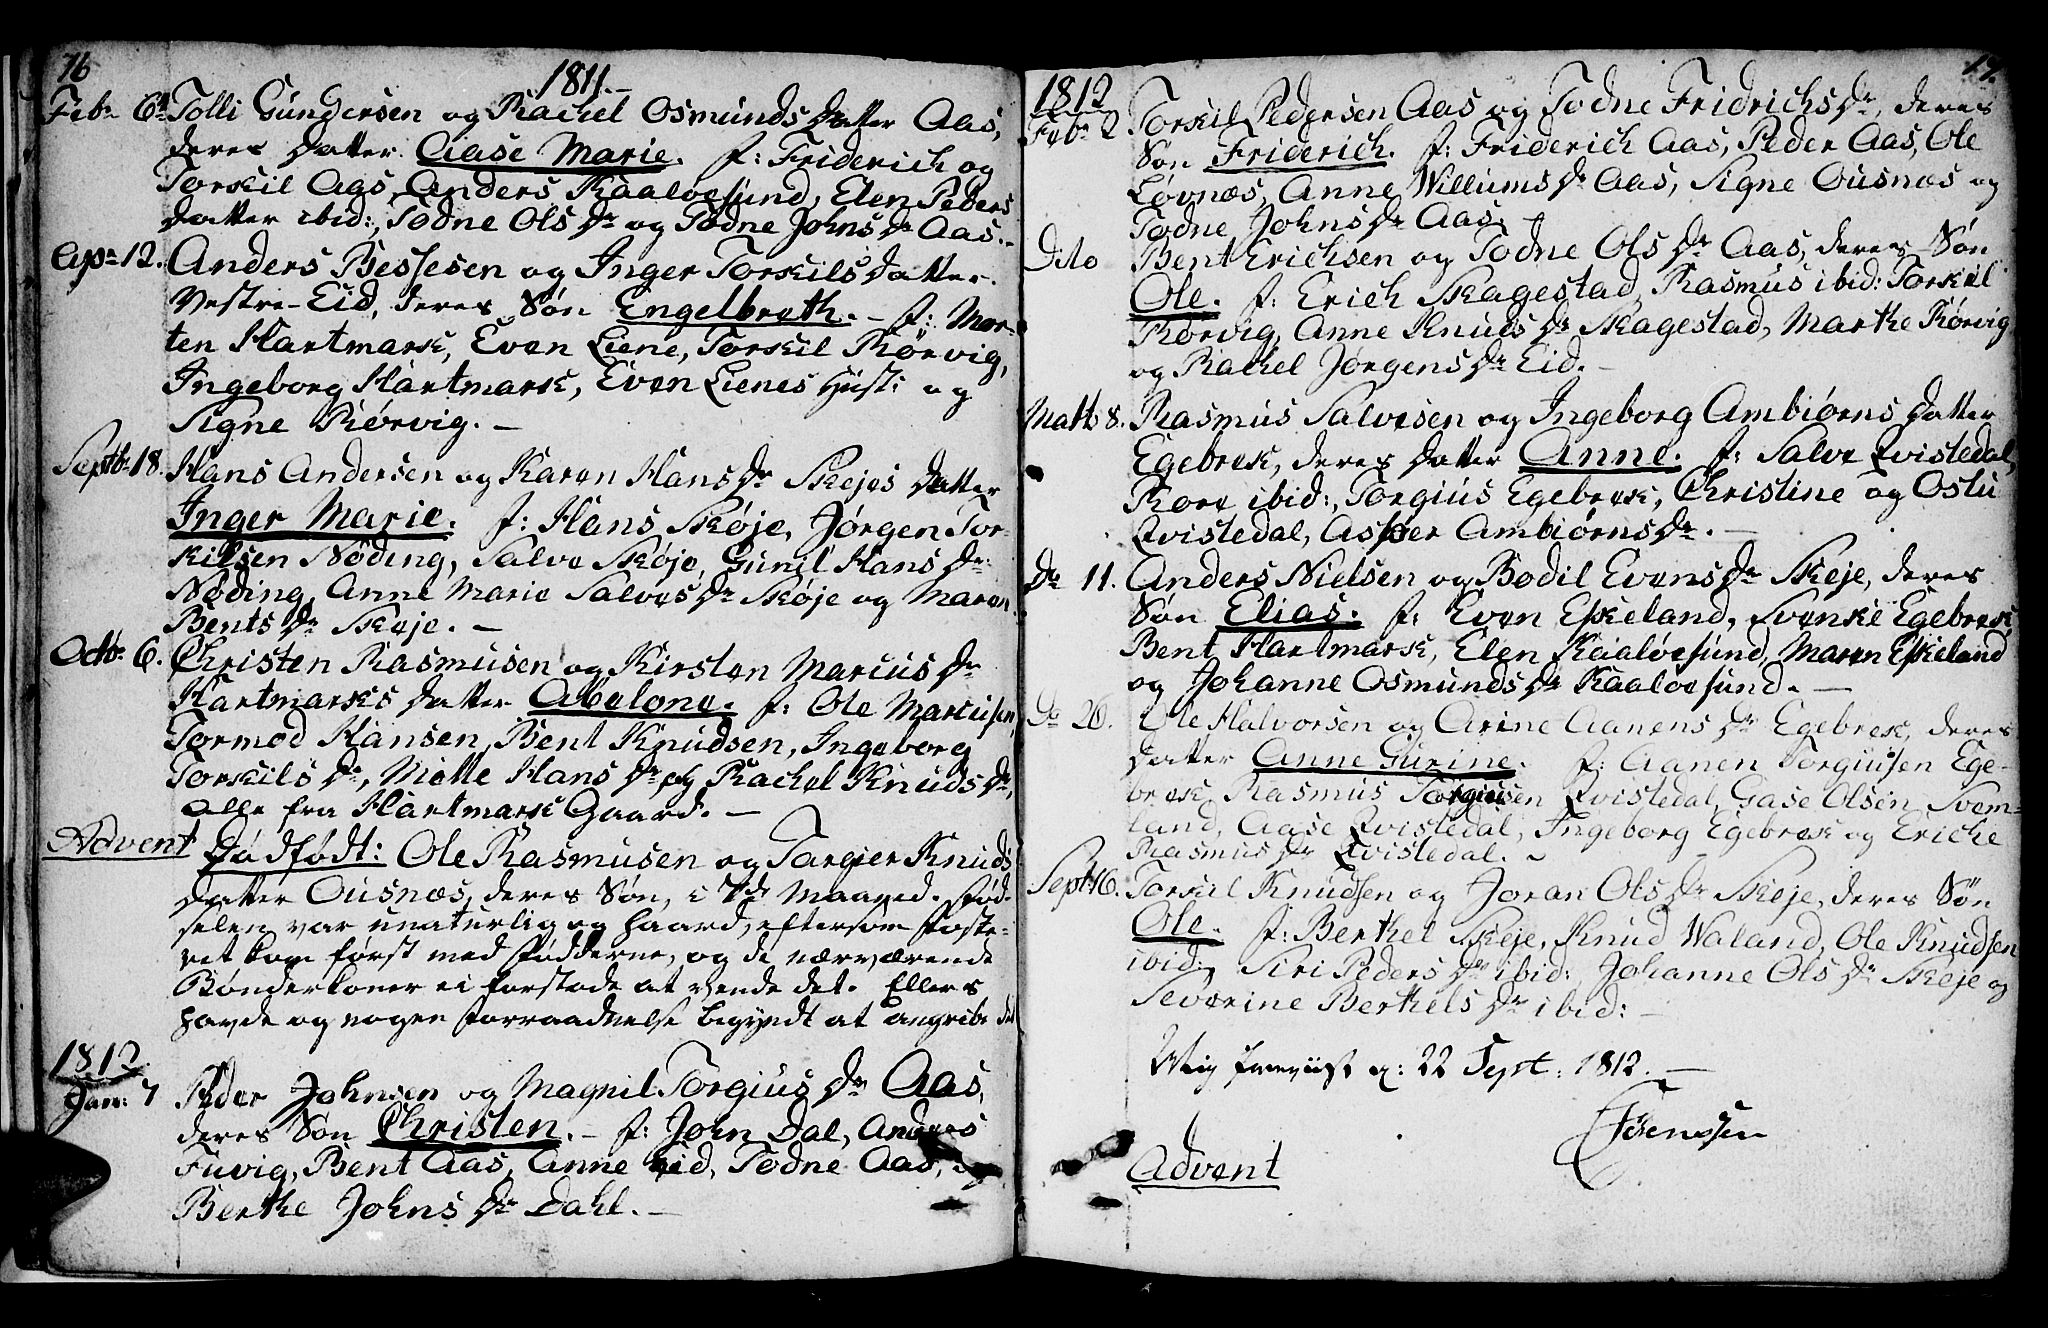 76
1811.
Feb: 6. Tolli Gundersen og Rachel Osmunds datter Aas,
deres datter Aase Marie. f: Friderich og
Torkil Aas, Anders Kaaløesund, Elen Peders
datter ibid:, Todne Ols Dr og Todne Johns Dr Aas.-
Apr 12. Anders Bessesen og Inger Torkils datter
Vestre-Eid, deres Søn Engelbreth. - f: Mor-
ten Hartmark, Even Liene, Torkil Rørvig,
Ingeborg Hartmark, Even Lienes Hust: og
Signe Rørvig. -
Septb. 18. Hans Andersen og Karen Hans Dr Skejes datter
Inger Marie. f: Hans Skøje, Jørgen Tor-
kilsen Nøding, Salve Skøje, Gunil Hans Dr
Nøding, Anne Marie Salves Dr Skøje og Maren
Bents Dr Skøje. -
Octb. 6. Christen Rasmusen og Kirsten Marcus Dr
Hartmarks datter Abelone. f: Ole Marcusen,
Tormod Hansen, Bent Knudsen, Ingeborg
Torkils Dr, Mette Hans Dr og Rachel Knuds Dr,
alle fra Hartmark Gaard. -
Advent Dødfødt: Ole Rasmusen og Targier Knuds
datter Ousnæs, deres Søn, i 7de Maaned. Fød-
selen var unaturlig og haard, eftersom Foste-
ret kom først med Fødderne, og de nærværende
Bønderkoner ei forstode at vende det. Ellers
havde og nogen Forraadnelse begyndt at angribe det
1812
Jan: 7 Peder Johnsen og Magnil Torgius Dr Aas,
deres Søn Christen. - f: John Dal, Anders
Fuvig, Bent Aas, Anne Eid, Todne Aas,
Berthe Johns Dr Dahl. -
17.
1812
Feb: 2 Torkil Pedersen Aas og Todne Fridrichs Dr, deres
Søn Friderich. f: Friderich Aas, Peder Aas, Ole
Løvnæs, Anne Willums Dr Aas, Signe Ousnæs og
Todne Johns Dr Aas.
Dito Bent Erichsen og Todne Ols Dr Aas, deres Søn
Ole. f: Erich Skagestad, Rasmus ibid: Torkil
Rørvig, Anne Knuds Dr Skagestad, Marthe Rørvig
og Rachel Jørgens Dr Eid. -
Matts 8. Rasmus Salvesen og Ingeborg Ambiørns datter
Egebrek, deres datter Anne. f: Salve Qvistedal,
Kore ibid:, Torgius Egebrek, Christine og Ostu
Qvistedal, Asper Ambiørns Dr. -
Do 11. Anders Nielsen og Bodil Evens Dr Skeje, deres
Søn Elias. f: Even Eskeland, Svenke Egebrek,
Bent Hartmark, Elen Kaaløesund, Maren Eskeland
og Johanne Osmunds Dr Kaaløesund. -
Do 26. Ole Halvorsen og Arine Aanens Dr Egebrek, deres
datter Anne Gurine. f: Aanen Torgiusen Ege-
brek, Rasmus Torgiusen Qvistedal, Gase Olsen Svem-
land, Aase Qvistedal, Ingeborg Egebrek og Ericke
Rasmus Dr Qvistedal. -
Sept: 16. Torkil Knudsen og Joran Ols Dr Skeje, deres Søn
Ole. f: Berthel Skeje, Knud Waland, Ole Knudsen
ibid:, Siri Peders Dr ibid: Johanne Ols Dr Skeje og
Severine Berthels Dr ibid: -
22 Sept: 1812. -
Advent